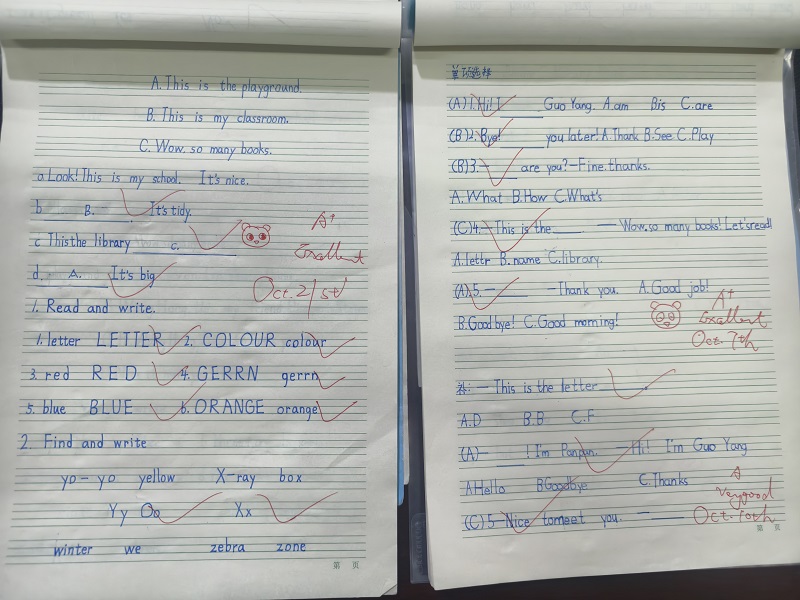 A. This is the playground.
B. This is my classroom.
C. Wow. so many books.
a. Look! This is my school. It's nice.
b. B. It's tidy.
c This the library c.
d. A. It's big
A+
Excellent
Oct. 21st
1. Read and write.
1. letter LETTER 2. COLOUR colour
3. red RED 4. GERRN gerrn
5. blue BLUE 6. ORANGE orange
2. Find and write
yo-yo yellow X-ray box
Yy Oo Xx
winter we zebra zone
第 页
单项选择
(A) 1. Hi! I ____ Guo Yang. A. am B is C. are
(B) 2. Bye! ____ you later! A. Thank B. See C. Play
(B) 3. — ____ are you? — Fine. thanks.
A. What B. How C. What's
(C) 4. — This is the ____. — Wow. so many books! Let's read!
A. lettr B. name C. library.
(A) 5. — ____ — Thank you. A. Good job!
B. Good bye! C. Good morning!
A+
Excellent
Oct. 7th
补: — This is the letter ____.
A. D B. B C. F
(A) — ____! I'm Panpan. — Hi! I'm Guo Yang
A Hello B Goodbye C. Thanks
(C) 5 — Nice tomeet you. — ____
A
very good
Oct. 10th
第 页